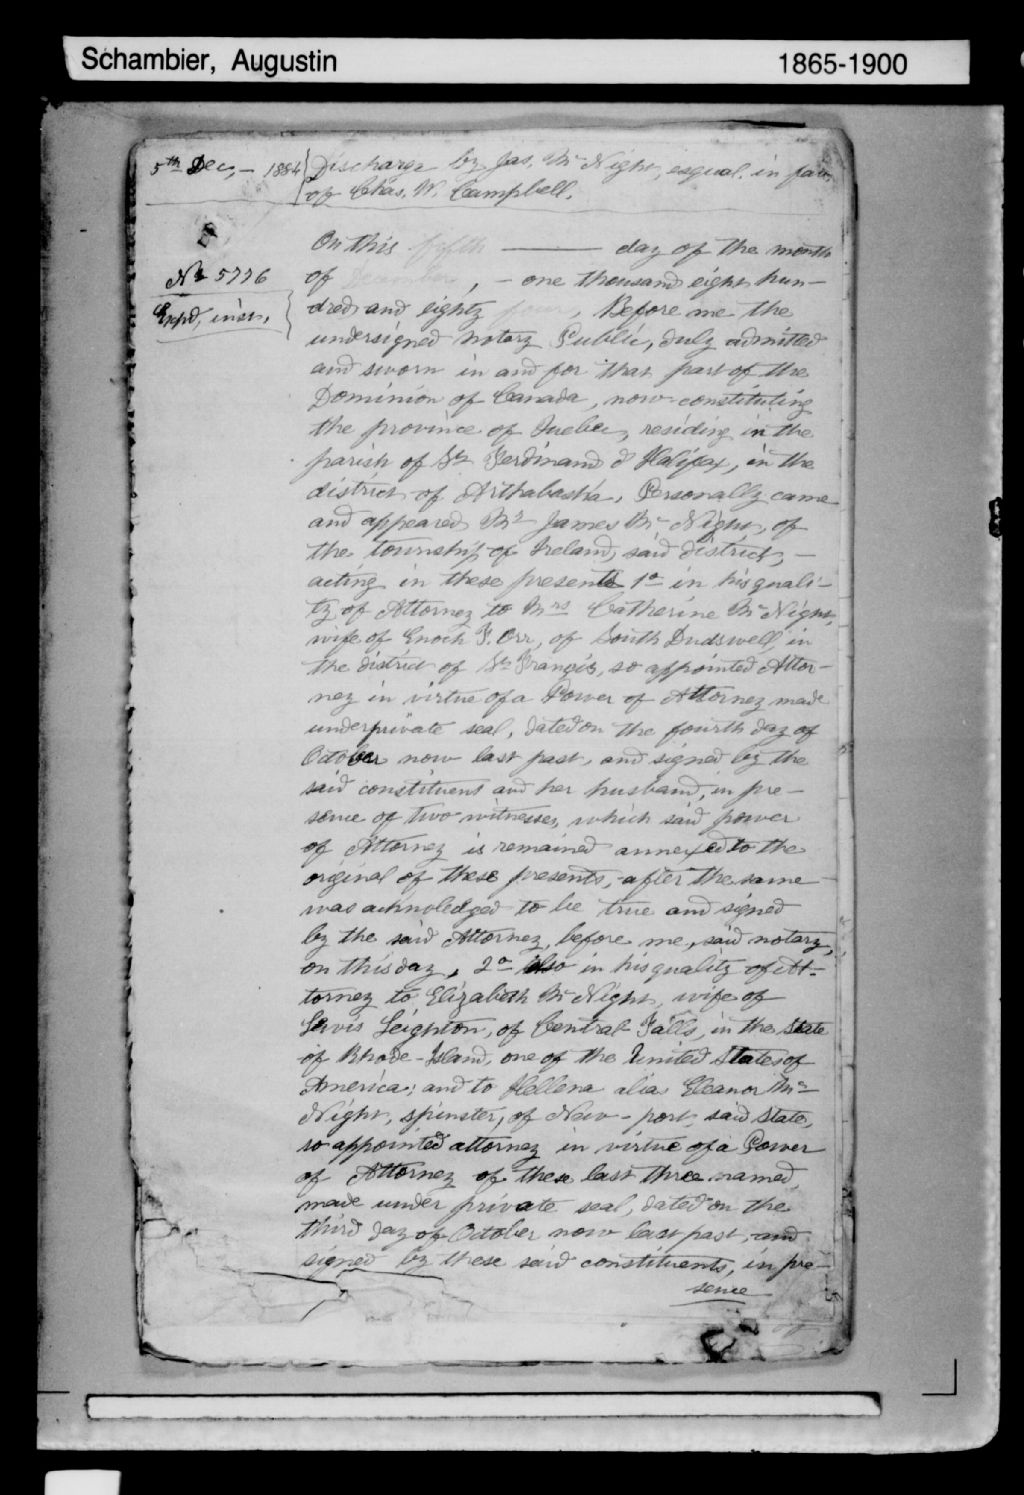 Schambier, Augustin 1865-1900
5th Dec, – 1884 Discharge by Jas. Mc Night, esqual. in fav.
of Chas. W. Campbell.
On this fifth ——— day of the month
No 5776
of December, – one thousand eight hun-
Exp'd, inst.
dred and eighty four, Before me the
undersigned notary Public, duly admitted
and sworn in and for that part of the
Dominion of Canada, now constituting
the province of Quebec, residing in the
parish of St Ferdinand d' Halifax, in the
district of Arthabaska, Personally came
and appeared Mr James Mc Night, of
the township of Ireland, said district, –
acting in these presents 1o in his quali-
ty of Attorney to Mrs Catherine Mc Night,
wife of Enoch F. Orr, of South Dudswell, in
the district of St Francis, so appointed Attor-
ney in virtue of a Power of Attorney made
under private seal, dated on the fourth day of
October now last past, and signed by the
said constituent and her husband, in pre-
sence of two witnesses, which said power
of Attorney is remained annexed to the
original of these presents, after the same
was acknoledged to be true and signed
by the said Attorney, before me, said notary,
on this day, 2o also in his quality of At-
torney to Elizabeth Mc Night, wife of
Levis Leighton, of Central Falls, in the State
of Rhode-Island, one of the United States of
America; and to Hellena alia Eleanor Mc
Night, spinster, of New-port, said State,
so appointed attorney in virtue of a Power
of Attorney of these last three named,
made under private seal, dated on the
third day of October now last past, and
signed by these said constituents, in pre-
sence